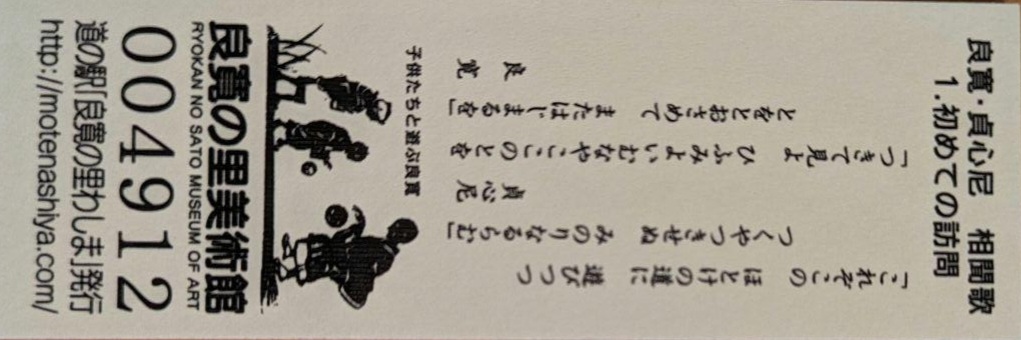 良寛・貞心尼　相聞歌
1.初めての訪問
「これぞこの　ほとけの道に　遊びつつ
つくやつきせぬ　みのりなるらむ」
貞心尼
「つきて見よ　ひふみよいむなや　ここのとを
とをとおさめて　またはじまるを」
良寛
子供たちと遊ぶ良寛
良寛の里美術館
RYOKAN NO SATO MUSEUM OF ART
004912
道の駅「良寛の里わしま」発行
http://motenashiya.com/